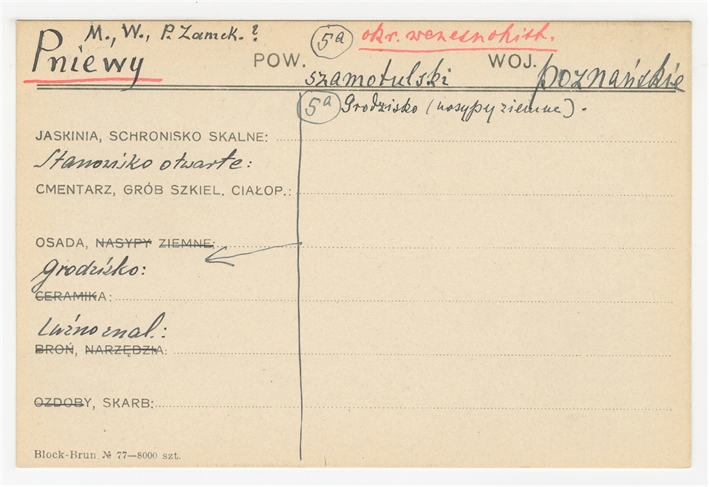 M., W., P. Zamek. ?
5a okr. wczesnohist.
Pniewy POW. szamotulski WOJ. poznańskie
5a Grodzisko (nasypy ziemne).
JASKINIA, SCHRONISKO SKALNE:
Stanowisko otwarte:
CMENTARZ, GRÓB SZKIEL. CIAŁOP.:
OSADA, NASYPY ZIEMNE:
Grodzisko:
CERAMIKA:
Luźno znal.:
BROŃ, NARZĘDZIA:
OZDOBY, SKARB:
Block-Brun № 77—8000 szt.